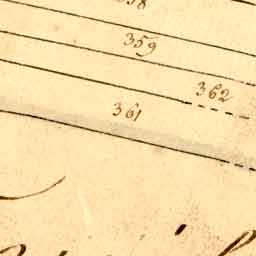 359
362
361